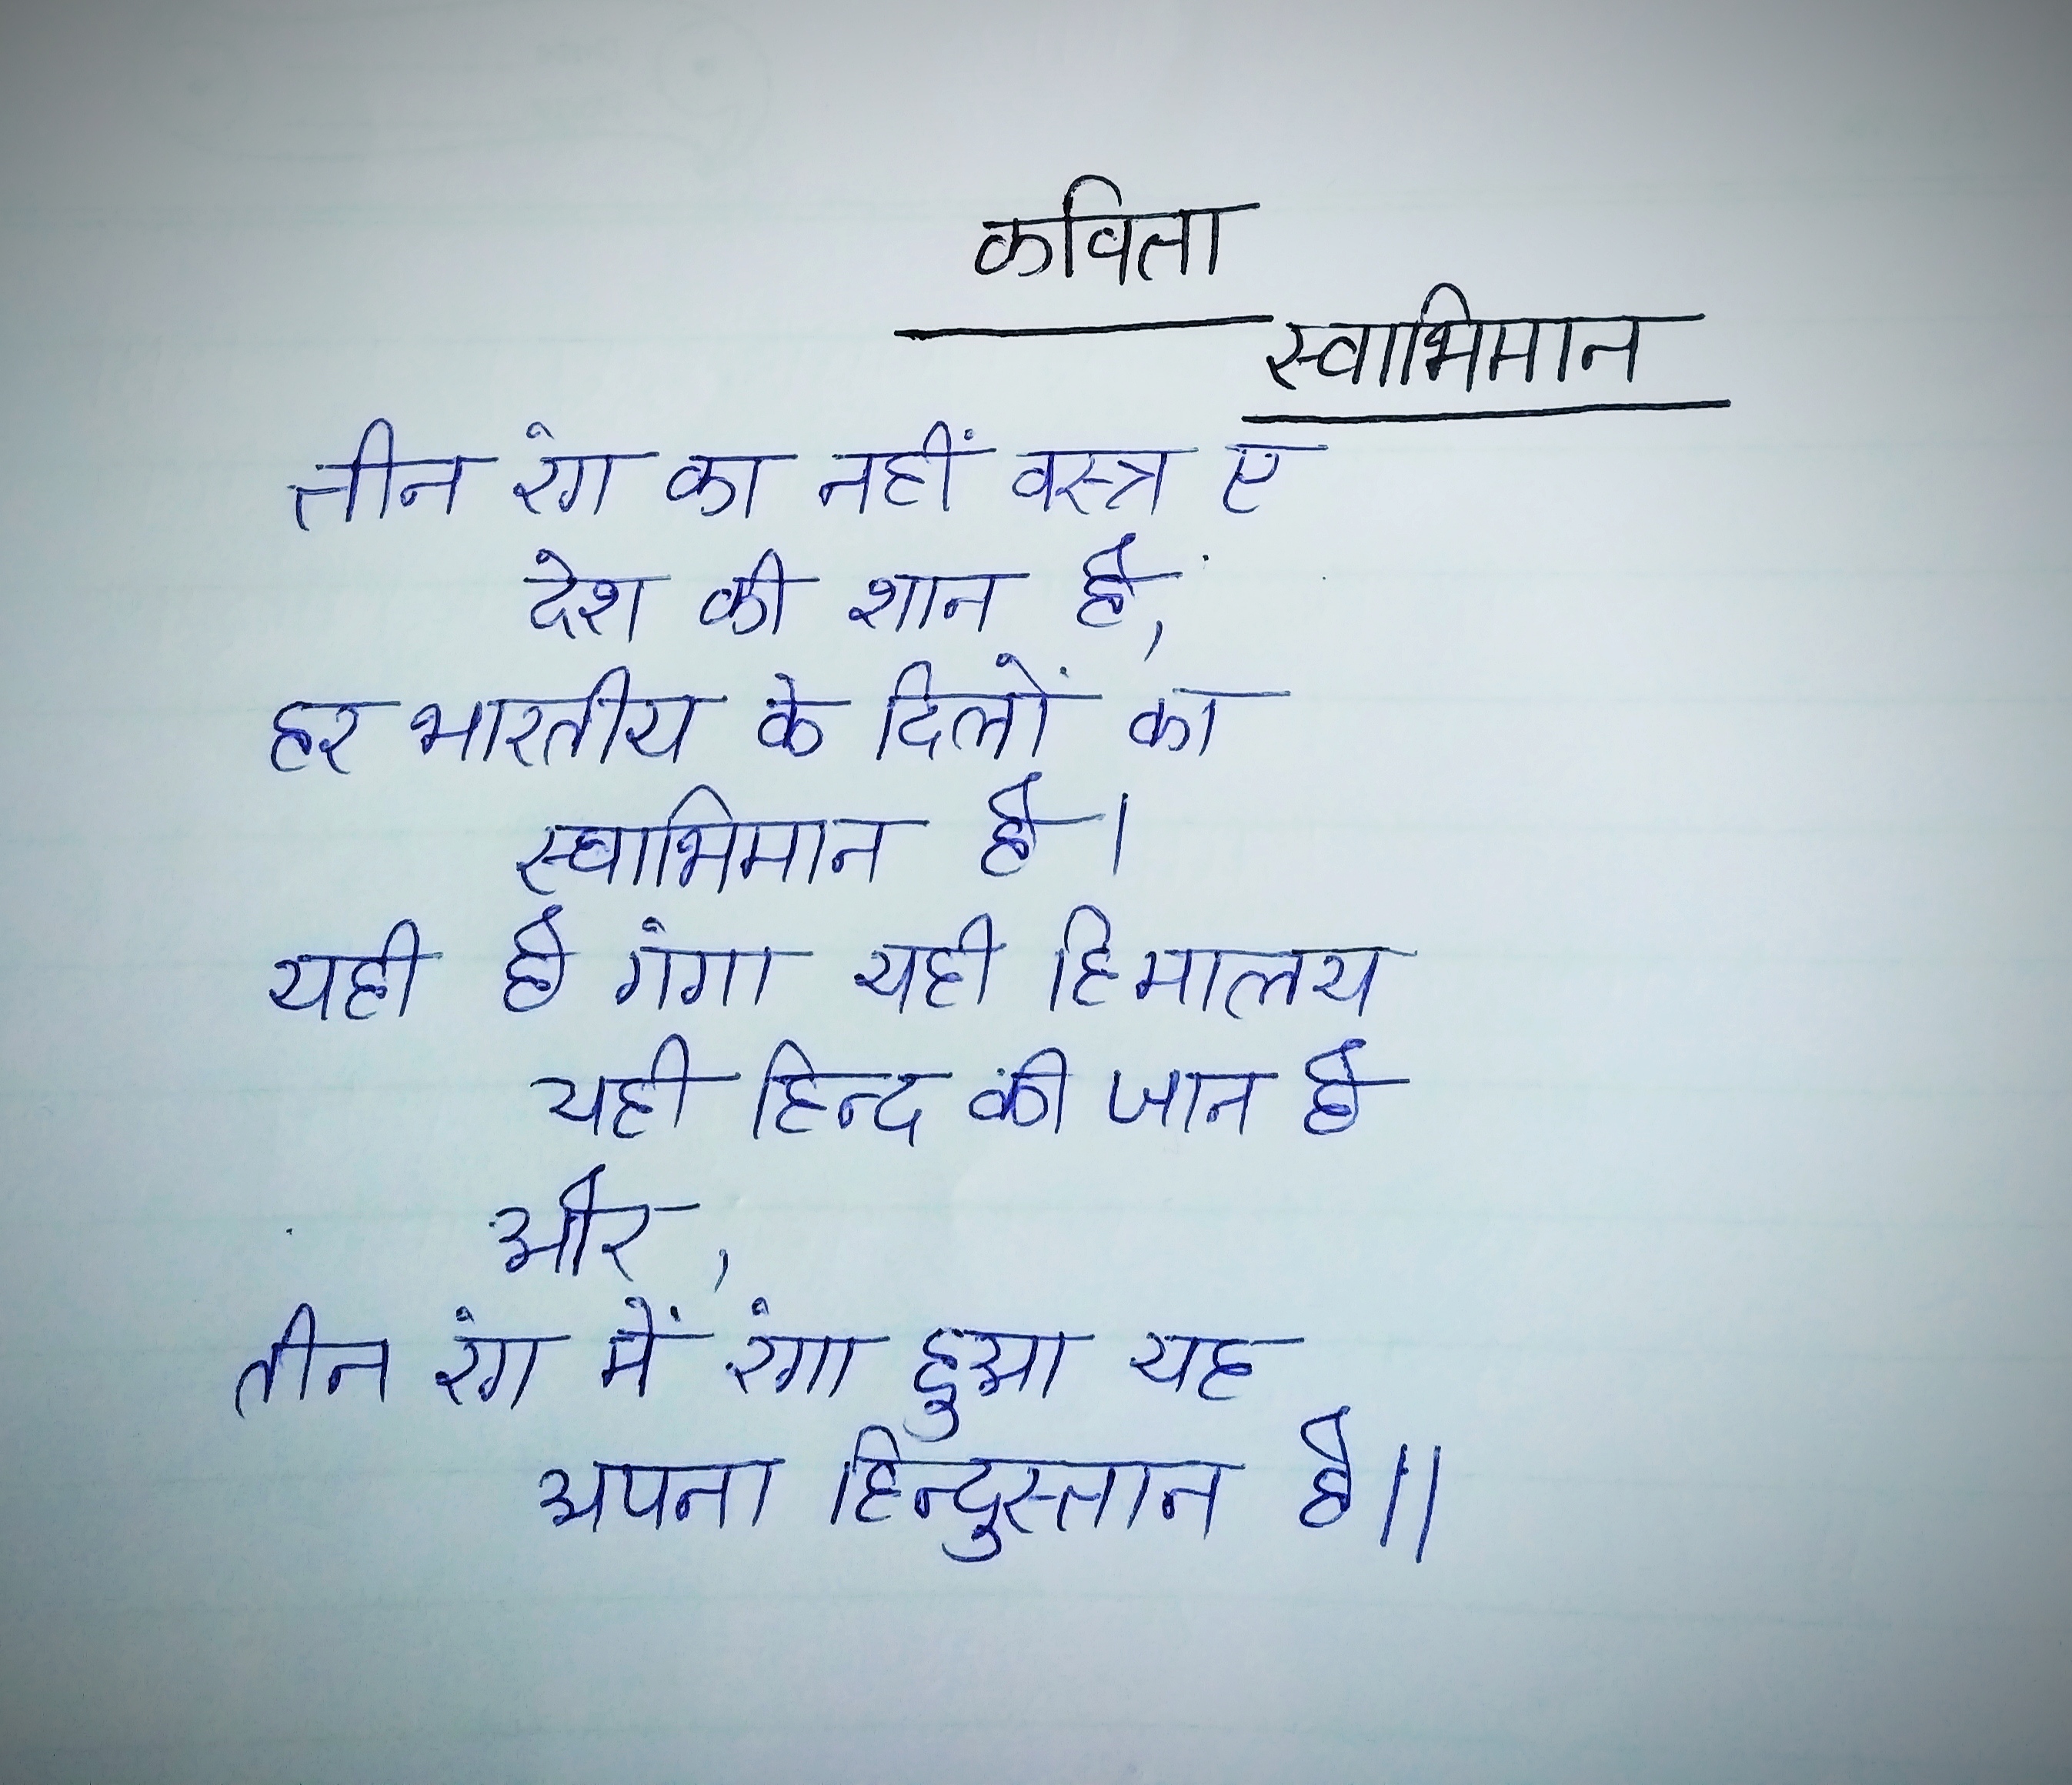 कविता
स्वाभिमान
तीन रंग का नहीं वस्त्र ए
देश की शान है,
हर भारतीय के दिलों का
स्वाभिमान है।
यही है गंगा यही हिमालय
यही हिन्द की जान है
और,
तीन रंग में रंगा हुआ यह
अपना हिन्दुस्तान है॥